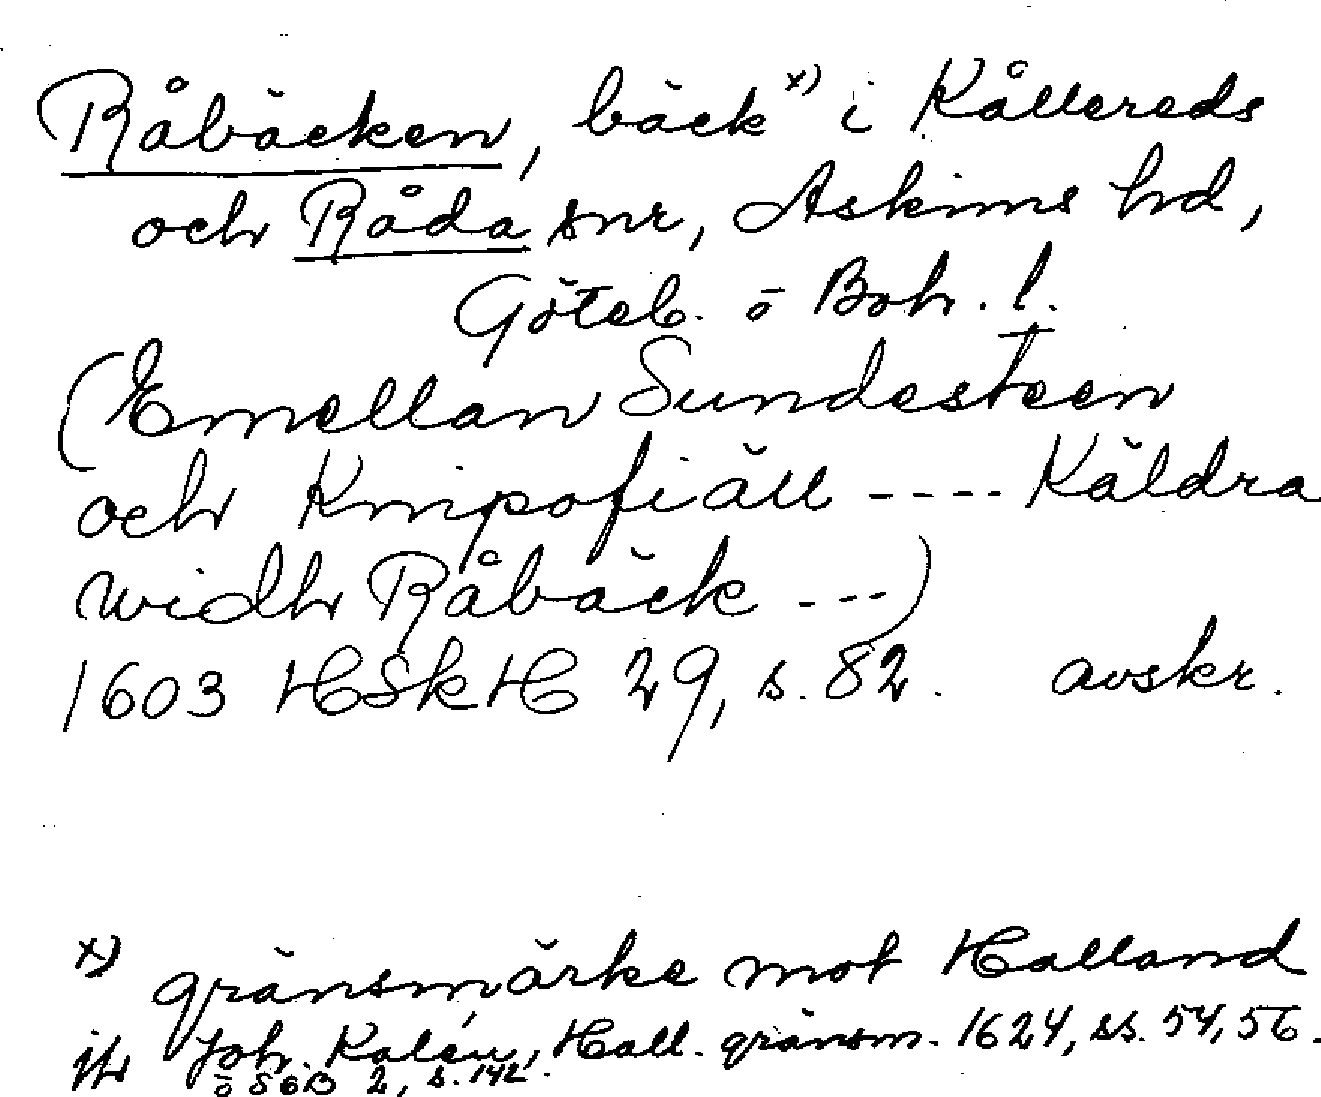 Råbäcken, bäck x) i Kållereds
och Råda snr, Askims hd,
Göteb. o Boh. l.
(Emellan Sundesteen
och Knipofiäll ---- Käldra
widh Råbäck ---)
1603 HSkH 29, s. 82. avskr.
x) gränsmärke mot Halland
jfr Joh. Kalén, Hall. gränsm. 1624, ss. 54, 56.
o SOB 2, s. 142.